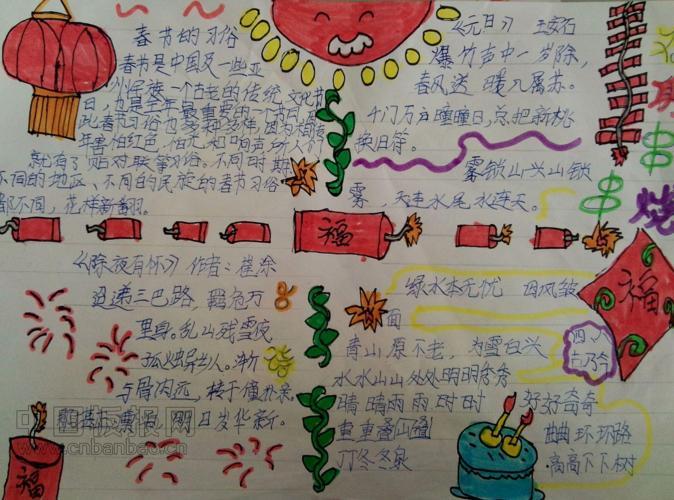 春节的习俗
春节是中国及一些亚
洲民族一个古老的传统文化节
日,也是全年最重要的一个节日
此春节习俗也多种多样,因为大
年害怕红色、怕火光和响声,所以人们
就有了贴对联等习俗。不同时期
不同的地区、不同的民族的春节习俗
都不同,花样新翻。
《元日》 王安石
爆竹声中一岁除,
春风送暖入屠苏。
千门万户曈曈日,总把新桃
换旧符。
雾锁山头山锁
雾,天连水尾水连天。
福
《除夜有怀》作者:崔涂
迢递三巴路,羁危万
里身。乱山残雪夜
孤烛异乡人。渐
与骨肉远,转于僮仆亲。
明日岁华新。
绿水本无忧 因风皱
面
青山原不老,为雪白头
水水山山处处明明秀秀
晴晴雨雨时时好好奇奇
重重叠叠山
曲环环路
丁冬冬泉
高高下下树
福
福
中国板报网
www.cnbanbao.cn